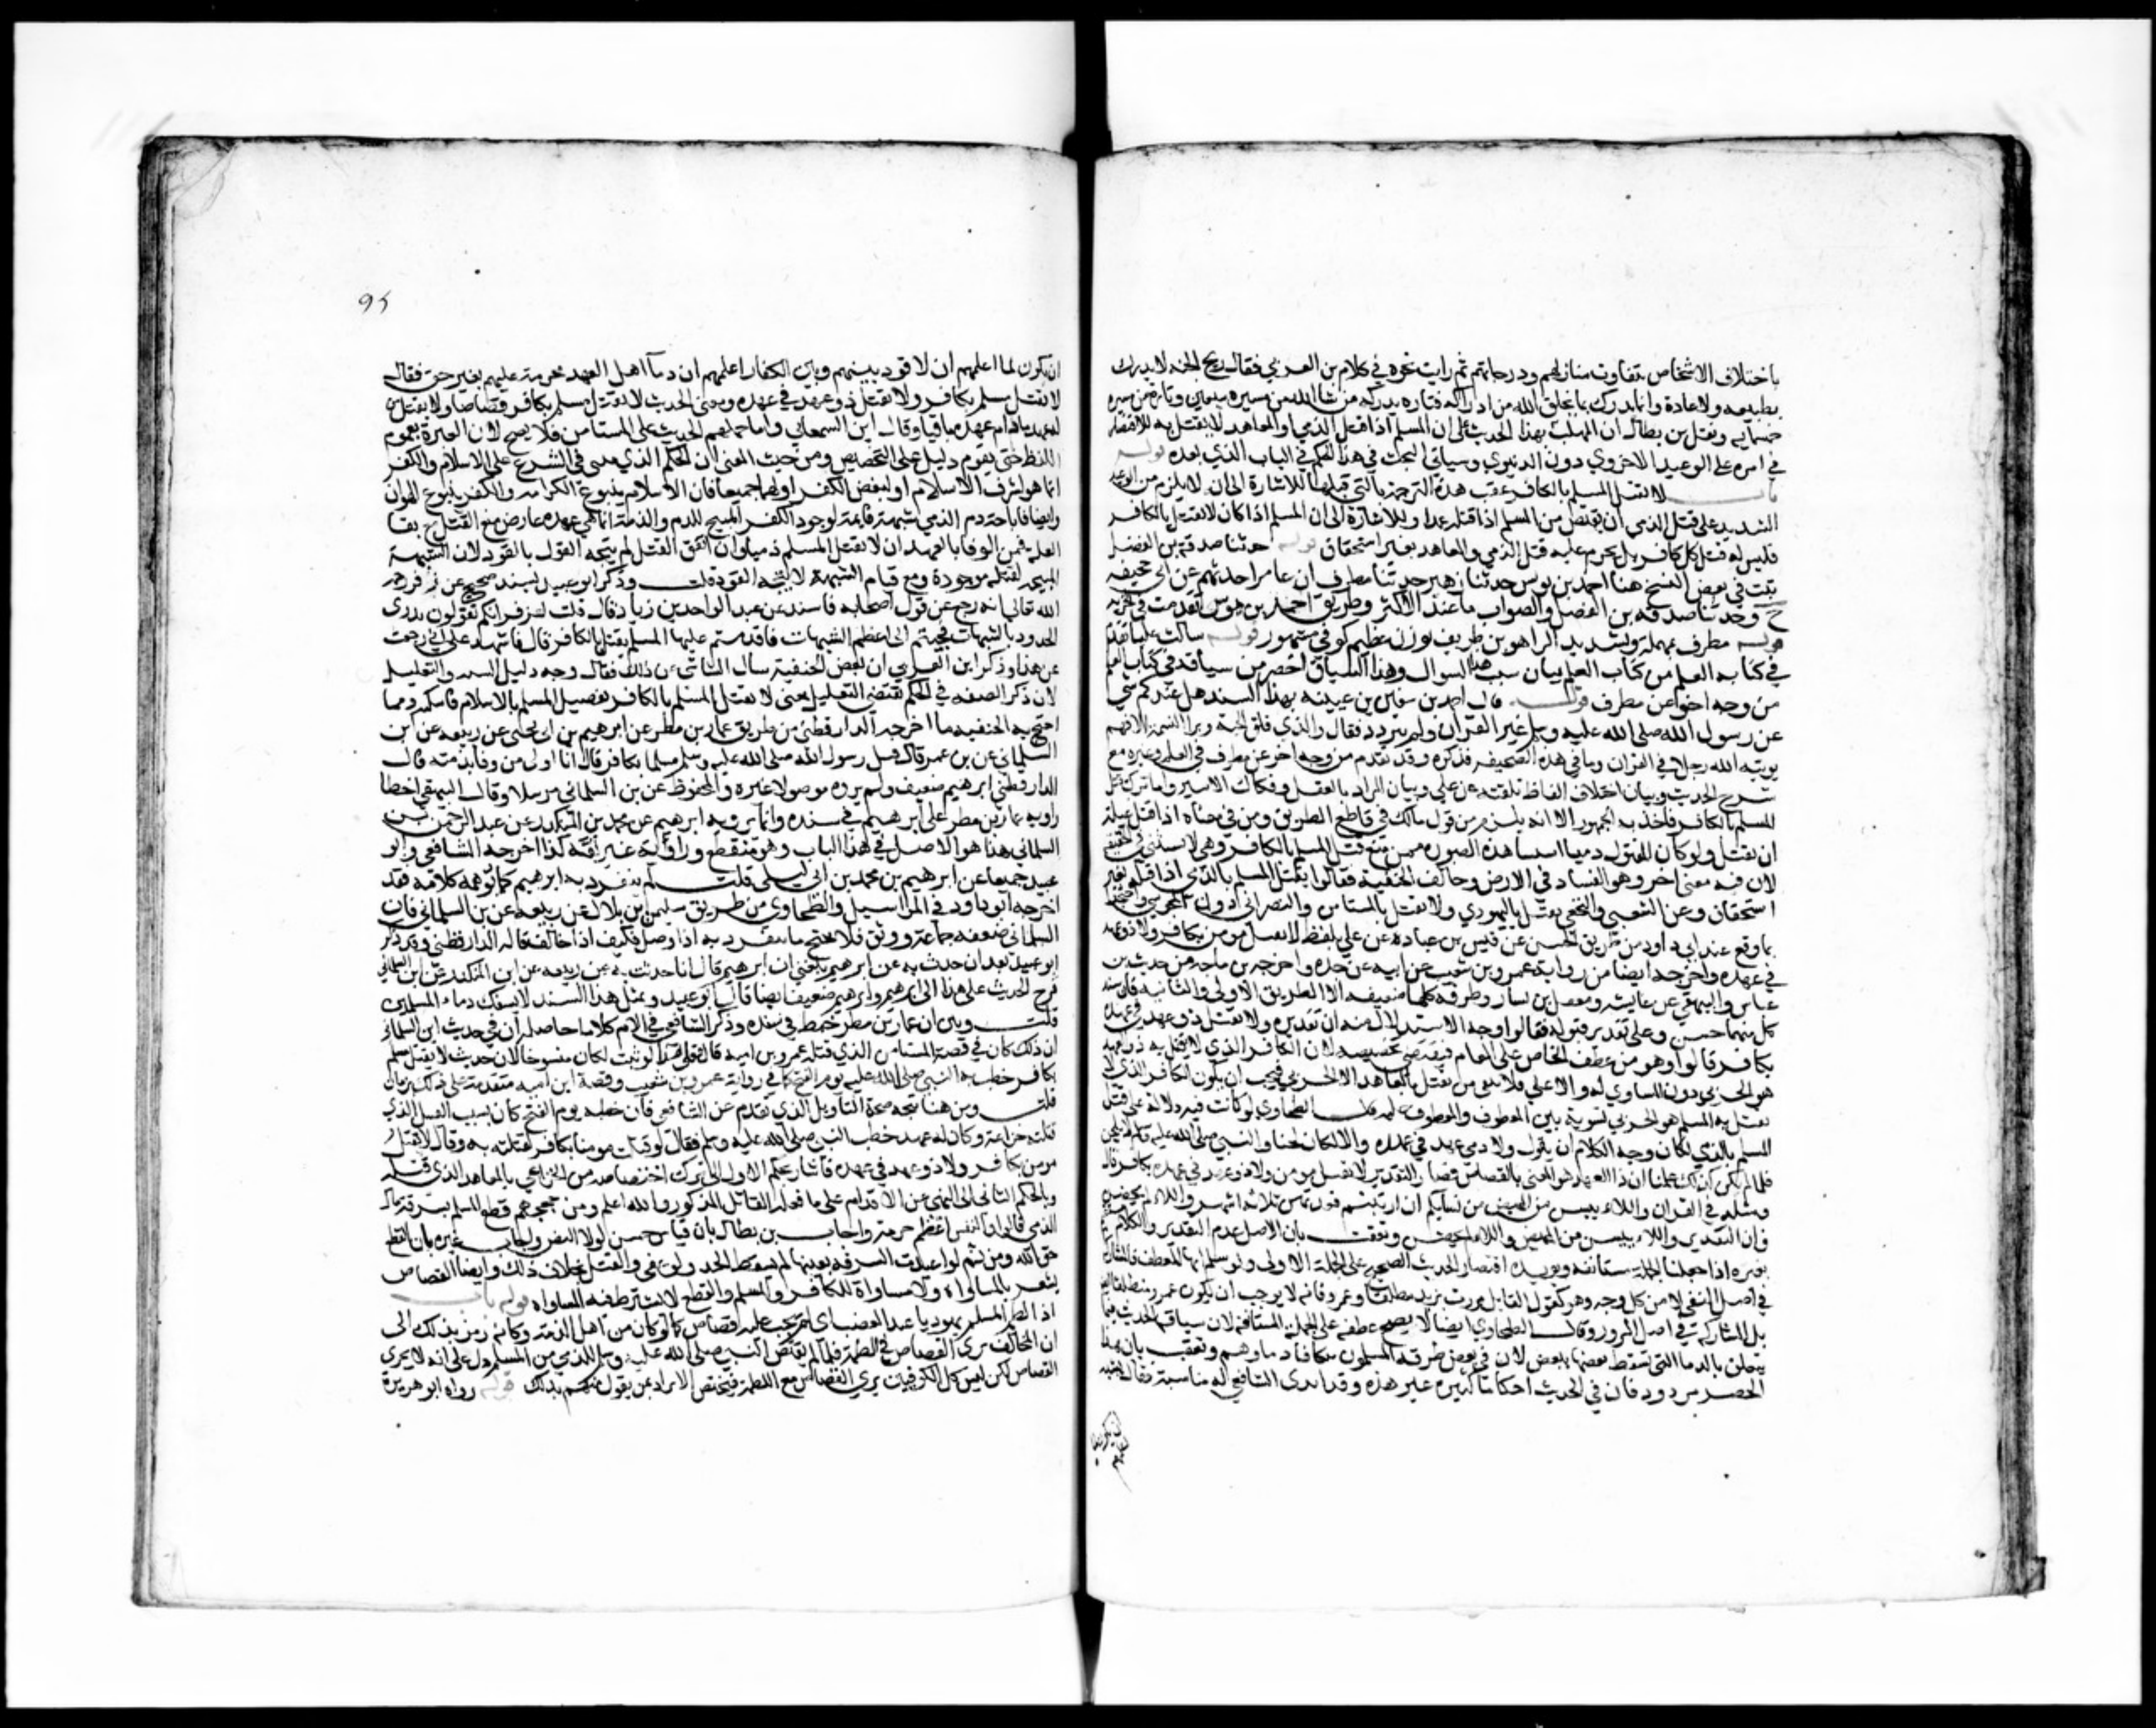 باختلاف الاشخاص بتفاوت منازلهم ودرجاتهم ثم رايت نحوه في كلام بن العربي فقال ريح الجنة لا يدرك
بطبيعه ولا عادة وانما يدرك بما يخلق الله من ادراكه فتارة يدركه من شا الله من مسيره سبعين وتارة من مسيره
خمسمايه ونقل بن بطال ان المهلب بهذا الحديث على ان المسلم اذا قتل الذمي او المعاهد لا يقتل به للاقتصار
في امره على الوعيد الاخروي دون الدنيوي وسياتي البحث في هذا الحكم في الباب الذي بعده قوله
باب لا يقتل المسلم بالكافر عقب هذه الترجمة بالتي قبلها للاشارة الى انه لا يلزم من الوعيد
الشديد على قتل الذمي ان يقتص من المسلم اذا قتله عمدا وللاشارة الى ان المسلم اذا كان لا يقتل بالكافر
فليس له قتل كل كافر بل يحرم عليه قتل الذمي والمعاهد بغير استحقاق قوله حدثنا صدقة بن الفضل
في بعض النسخ هنا احمد بن يونس حدثنا زهير حدثنا مطرف ان عامرا حدثهم عن ابي جحيفه
ح وحدثنا صدقه بن الفضل والصواب ما عند الاكثر وطريق احمد بن يونس تقدمت في الجزيه
قوله مطرف بمهملة وتشديد الراء هو بن طريف بوزن عظيم كوفي مشهور قوله سالت عليا تقدم
في كتابه العلم من كتاب العلم بيان سبب هذا السوال وهذا السياق اخصر من سياقه في كتاب العلم
من وجه اخر عن مطرف قوله قال احمد بن سفين بن عيينه بهذا السند هل عندكم شي
عن رسول الله صلى الله عليه وسلم غير القران ولم يتردد فقال والذي فلق الحبة وبرا النسمة الا فهم
يوتيه الله رجلا في القران وما في هذه الصحيفه فذكره وقد تقدم من وجه اخر عن مطرف في العلم وغيره مع
شرح الحديث وبيان اختلاف الفاظ نقلته عن علي وبيان المراد بالعقل وفكاك الاسير واما ترك قتل
المسلم بالكافر فاخذ به الجمهور الا انه يلزم من قول مالك في قاطع الطريق ومن في معناه اذا قتل غيلة
ان يقتل ولو كان المقتول ذميا استثنا هذه الصوره من منع قتل المسلم بالكافر وهي لا تستثنى في الحقيقة
لان فيه معنى اخر وهو الفساد في الارض وخالف الحنفية فقالوا يقتل المسلم بالذمي اذا قتله بغير
استحقاق وعن الشعبي والنخعي يقتل باليهودي والنصراني دون المجوسي واحتجوا
بما وقع عند ابي داود من طريق الحسن عن قيس بن عباده عن علي بلفظ لا يقتل مومن بكافر ولا ذو عهد
في عهده واخرجه ايضا من رواية عمرو بن شعيب عن ابيه عن جده واخرجه بن ماجه من حديث بن
عباس والبيهقي عن عايشه ومعقل بن يسار وطرقه كلها ضعيفه الا الطريق الاولى والثانيه فان سند
كل منهما حسن وعلى تقدير قبوله فقالوا وجه الاستدلال منه ان تقديره ولا يقتل ذو عهد في عهده
بكافر قالوا وهو من عطف الخاص على العام فيقتضي تخصيصه لان الكافر الذي لا يقتل به ذو العهد
هو الحربي دون المساوي له والاعلى فلا يبقى من يقتل بالمعاهد الا الحربي فيجب ان يكون الكافر الذي لا
يقتل به المسلم هو الحربي تسوية بين المعطوف والمعطوف عليه قال الطحاوي لو كانت فيه دلالة على نفي قتل
المسلم بالذمي لكان وجه الكلام ان يقول ولا ذي عهد في عهده والا لكان لحنا والنبي صلى الله عليه وسلم لا يلحن
فلما لم يكن كذلك علمنا ان ذا العهد هو المعني بالقصاص فصار التقدير لا يقتل مومن ولا ذو عهد في عهده بكافر قال
ومثله في القران واللاء ييسن من المحيض من نسايكم ان ارتبتم فعدتهن ثلاثه اشهر واللاء لم يحضن
فان التقدير واللاء ييسن من المحيض واللاء لم يحضن وتعقب بان الاصل عدم التقدير والكلام
بغيره اذا جعلنا الجملة مستانفه ويويده اقتصار الحديث الصحيح على الجملة الاولى ولو سلم انها للعطف فالمشاركة
في اصل النفي لا من كل وجه وهو كقول القايل مررت بزيد منطلقا وعمرو فانه لا يوجب ان يكون عمرو منطلقا
بل المشاركة في اصل المرور وقال الطحاوي ايضا لا يصح عطفه على الجملة المستانفه لان سياق الحديث فيما
يتعلق بالدما التي تسقط بعضها ببعض لان في بعض طرقه المسلمون تتكافا دماوهم وتعقب بان هذا
الحصر مردود فان في الحديث احكاما كثيره غير هذه وقد ابدى الشافعي له مناسبة فقال يشبه
ان يكون لما
اعلمهم
٩٥
ان يكون لما اعلمهم ان لا قود بينهم وبين الكفار اعلمهم ان دما اهل العهد محرمة عليهم بغير حق فقال
لا يقتل مسلم بكافر ولا يقتل ذو عهد في عهده ومعنى الحديث لا يقتل مسلم بكافر قصاصا ولا يقتل من
له عهد ما دام عهده باقيا وقال ابن السمعاني واما حملهم الحديث على المستامن فلا يصح لان العبرة بعموم
اللفظ حتى يقوم دليل على التخصيص ومن حيث المعنى ان الحكم الذي يبنى في الشرع على الاسلام والكفر
انما هو لشرف الاسلام او لنقص الكفر او لهما جميعا فان الاسلام ينبوع الكرامة والكفر ينبوع الهوان
وايضا فاباحة دم الذمي شبهة قايمة لوجود الكفر المبيح للدم والذمة انما هي عهد عارض منع القتل مع بقا
العلة فمن الوفا بالعهد ان لا يقتل المسلم ذميا وان اتفق القتل لم يتجه القول بالقود لان الشبهة
المبيحة لقتله موجودة ومع قيام الشبهة لا يتجه القود قلت وذكر ابو عبيد بسند صحيح عن زفر رحمه
الله تعالى انه رجع عن قول اصحابه فاسند عن عبد الواحد بن زياد قال قلت لزفر انكم تقولون تدرى
الحدود بالشبهات فجيتم الى اعظم الشبهات فاقدمتم عليها المسلم يقتل بالكافر قال فاشهد على اني رجعت
عن هذا وذكر ابن العربي ان بعض الحنفية سال الشاشي عن ذلك فقال وجه دليل السنه والتعليل
لان ذكر الصفه في الحكم يقتضي التعليل فمعنى لا يقتل المسلم بالكافر تفضيل المسلم بالاسلام فاسكته ومما
احتج به الحنفيه ما اخرجه الدارقطني من طريق عمار بن مطر عن ابرهيم بن ابي يحيى عن ربيعه عن ابن
البيلماني عن بن عمر قال قتل رسول الله صلى الله عليه وسلم مسلما بكافر قال انا اولى من وفا بذمته قال
الدارقطني ابرهيم ضعيف ولم يروه موصولا غيره والمحفوظ عن بن البيلماني مرسلا وقال البيهقي اخطا
راويه عمار بن مطر على ابرهيم في سنده وانما يرويه ابرهيم عن محمد بن المنكدر عن عبد الرحمن بن
البيلماني هذا هو الاصل في هذا الباب وهو منقطع وراويه غير ثقه كذا اخرجه الشافعي وابو
عبيد جميعا عن ابرهيم بن محمد بن ابي ليلى قلت لم ينفرد به ابرهيم كما توهمه كلامه فقد
اخرجه ابو داود في المراسيل والطحاوي من طريق سليمن بن بلال عن ربيعه عن بن البيلماني فان
البيلماني ضعفه جماعة ووثق فلا يحتج بما ينفرد به اذا وصل فكيف اذا خالف قاله الدارقطني وقد ذكر
ابو عبيد بعد ان حدث به عن ابرهيم بلغني ان ابرهيم قال انا حدثت به عن ربيعه عن ابن المنكدر عن ابن البيلماني
فرجع الحديث على هذا الى ابرهيم وابرهيم ضعيف ايضا قال ابو عبيد وبمثل هذا السند لا يسفك دماء المسلمين
قلت وتبين ان عمار بن مطر خبط في سنده وذكر الشافعي في الام كلاما حاصله ان في حديث ابن البيلماني
ان ذلك كان في قصة المستامن الذي قتله عمرو بن اميه قال فعلى هذا لو ثبت لكان منسوخا لان حديث لا يقتل مسلم
بكافر خطب به النبي صلى الله عليه يوم الفتح كما في رواية عمرو بن شعيب وقصة ابن اميه متقدمة على ذلك بزمان
قلت ومن هنا يتجه صحة التاويل الذي تقدم عن الشافعي فان خطبة يوم الفتح كان بسبب القتيل الذي
قتلته خزاعة وكان له عهد فخطب النبي صلى الله عليه وسلم فقال لو قتلت مومنا بكافر لقتلته به وقال لا يقتل
مومن بكافر ولا ذو عهد في عهده فاشار بحكم الاول الى ترك اقتصاصه من الخزاعي بالمعاهد الذي قتله
وبالحكم الثاني الى النهي عن الاقدام على ما فعله القاتل المذكور والله اعلم ومن حججهم قطع المسلم بسرقة مال
الذمي قالوا والنفس اعظم حرمة واجاب بن بطال بان قياس حسن لولا النص واجاب غيره بان القطع
حق الله ومن ثم لو اعيدت السرقه بعينها لم يسقط الحد ولو عفى والقتل بخلاف ذلك وايضا القصاص
يشعر بالمساواة ولا مساواة للكافر والمسلم والقطع لا يشترط فيه المساواه قوله باب
اذا لطم المسلم يهوديا عند الغضب اي لم يجب عليه قصاص كما لو كان من اهل الذمة وكانه رمز بذلك الى
ان المخالف يرى القصاص في اللطمة فلما لم يقتص النبي صلى الله عليه وسلم للذمي من المسلم دل على انه لا يجري
القصاص لكن ليس كل الكوفيين يرى القصاص مع اللطمة فيختص الايراد بمن يقول منهم بذلك قوله رواه ابو هريرة